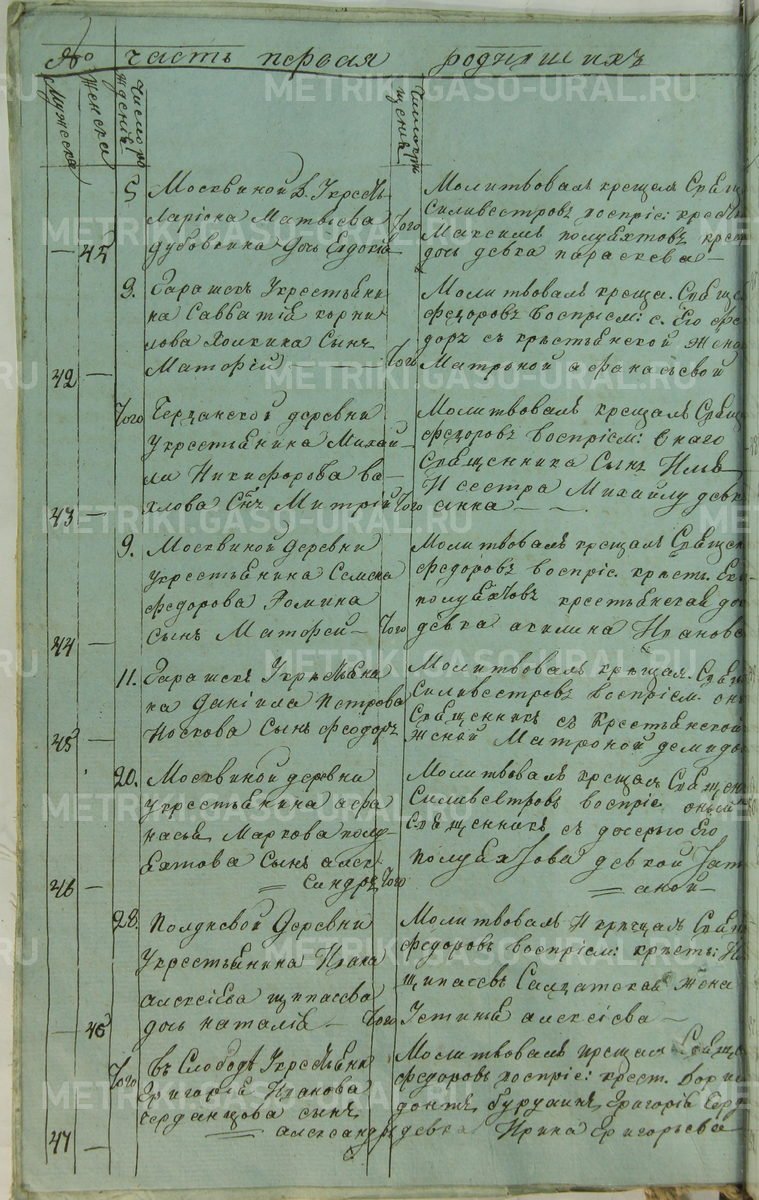 № часть первая родившихъ
Мужеска
Женска
число рождения
число крещения
45
5. Москвиной д. Укрестъ
Ларiона Матвъева
Дубовкина дочь Евдокiа
того
Молитвовалъ крещалъ Свящ
Силивестровъ воспрiе: крестъ
Максимъ полуехтовъ крест
дочь девка параскева
42
9. Гарашкъ Укрестьяни
на Савватiй корни
лова Сынъ
Матфей
того
Молитвовалъ креща. Свяще
федоровъ воспрiем: с. Его фео
доръ съ крестьянской жена
Матрьной афанасьевой
43
того деревни
Укрестьянина Михай
ла Никифорова ва
хлова Сынъ Митрiй
того
Молитвовалъ крещалъ Свящ
федоровъ воспрiем: онаго
Священника Сынъ Илья
И сестра Михайлу девка
анна
44
9. Москвиной деревни
укрестьянина Семена
федорова Фомина
сынъ Матфей
того
Молитвовалъ крещалъ Священ
федоровъ воспрiе. крестъ.
полуехтовъ крестьянская доч
девка акилина Иванова
45
11. Гарашкъ Укрестьяни
на Данiила Петрова
Носкова Сынъ феодоръ
того
Молитвовалъ крещал. Свяще
Силивестровъ воспрiем. он
Священникъ съ Крестьянской
Женой Матроной демидов
46
20. Москвиной деревни
Укрестьянина афа
насья Маркова полу
Ехтова Сынъ алек
сандръ
того
Молитвовалъ крещалъ Священ
Силивестровъ воспрiе оный
Священникъ съ досерью Его
полуехтова девкой Тат
аной
46
28. Полдневой Деревни
Укрестьянина Ивана
алексiева щипачева
дочь наталiя
того
Молитвовалъ И крещалъ Свящ
федоровъ воспрiем: крестъ:
Щипачевъ Салдатская жена
Устинья алексiева
47
того въ Слободъ Укрестьяни
Григорiй Иванова
Берданцова сынъ
александръ
Молитвовалъ крещалъ Свяще
федоровъ воспрiе: крест.
бурухинъ Григорiй
девка Ирина Григорьева
METRIKI.GASO-URAL.RU